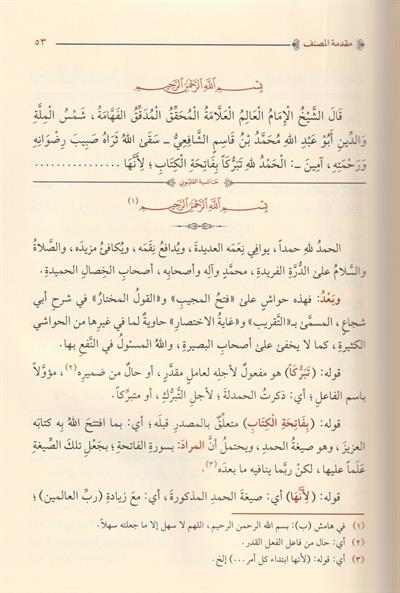 مقدمة المصنف ٥٣
بِسْمِ اللَّهِ الرَّحْمَنِ الرَّحِيمِ
قَالَ الشَّيْخُ الإِمَامُ العَالِمُ العَلَّامَةُ المُحَقِّقُ المُدَقِّقُ الفَهَّامَةُ ، شَمْسُ المِلَّةِ
وَالدِّينِ أَبُو عَبْدِ اللهِ مُحَمَّدُ بْنُ قَاسِمٍ الشَّافِعِيُّ ـ سَقَىٰ اللهُ ثَرَاهُ صَبِيبَ رِضْوَانِهِ
وَرَحْمَتِهِ ، آمِينَ ـ: الْحَمْدُ لِلهِ تَبَرُّكاً بِفَاتِحَةِ الْكِتَابِ ؛ لِأَنَّهَا ................
حاشية القليوبي
بِسْمِ اللَّهِ الرَّحْمَنِ الرَّحِيمِ (١)
الحمدُ للهِ حمداً، يوافي نعَمَه العديدةَ، ويُدافعُ نِقَمَه، ويُكافئُ مزيدَه، والصَّلاةُ
والسَّلامُ علىٰ الدُّرَّةِ الفريدةِ، محمَّدٍ وآله وأصحابِه، أصحابِ الخِصالِ الحميدةِ.
وبَعْدُ: فهذه حواشٍ علىٰ «فتحُ المجيبِ» و«القولُ المختارُ» في شرحِ أبي
شجاعٍ، المسمَّىٰ بـ«التَّقريب» و«غايةُ الاختصارِ» حاويةٌ لما في غيرِها من الحواشي
الكثيرةِ، كما لا يخفىٰ علىٰ أصحابِ البصيرةِ، واللهُ المسئولُ في النَّفعِ بها.
قوله: (تَبَرُّكاً) هو مفعولٌ لأجلِه لعاملٍ مقدَّرٍ، أو حالٌ من ضميرِه(٢)، مؤوَّلاً
باسمِ الفاعلِ؛ أي: ذكرتُ الحمدلةَ؛ لأجلِ التَّبرُّكِ، أو متبرِّكاً.
قوله: (بِفَاتِحَةِ الْكِتَابِ) متعلِّقٌ بالمصدرِ قبلَه؛ أي: بما افتتحَ اللهُ به كتابَه
العزيزَ، وهو صيغةُ الحمدِ، ويحتملُ أنَّ المرادَ: بسورةِ الفاتحةِ؛ بجَعْلِ تلك الصِّيغةِ
عَلَماً عليها، لكنْ ربَّما ينافيه ما بعدَه(٣).
قوله: (لِأَنَّهَا) أي: صيغةَ الحمدِ المذكورةَ، أي: مَع زيادةِ (ربِّ العالمين)؛
(١) في هامش (ب): بسم الله الرحمن الرحيم، اللهم لا سهل إلا ما جعلته سهلاً.
(٢) أي: حال من فاعل الفعل القدر.
(٣) أي: قوله: (لأنها ابتداء كل أمر...) إلخ.